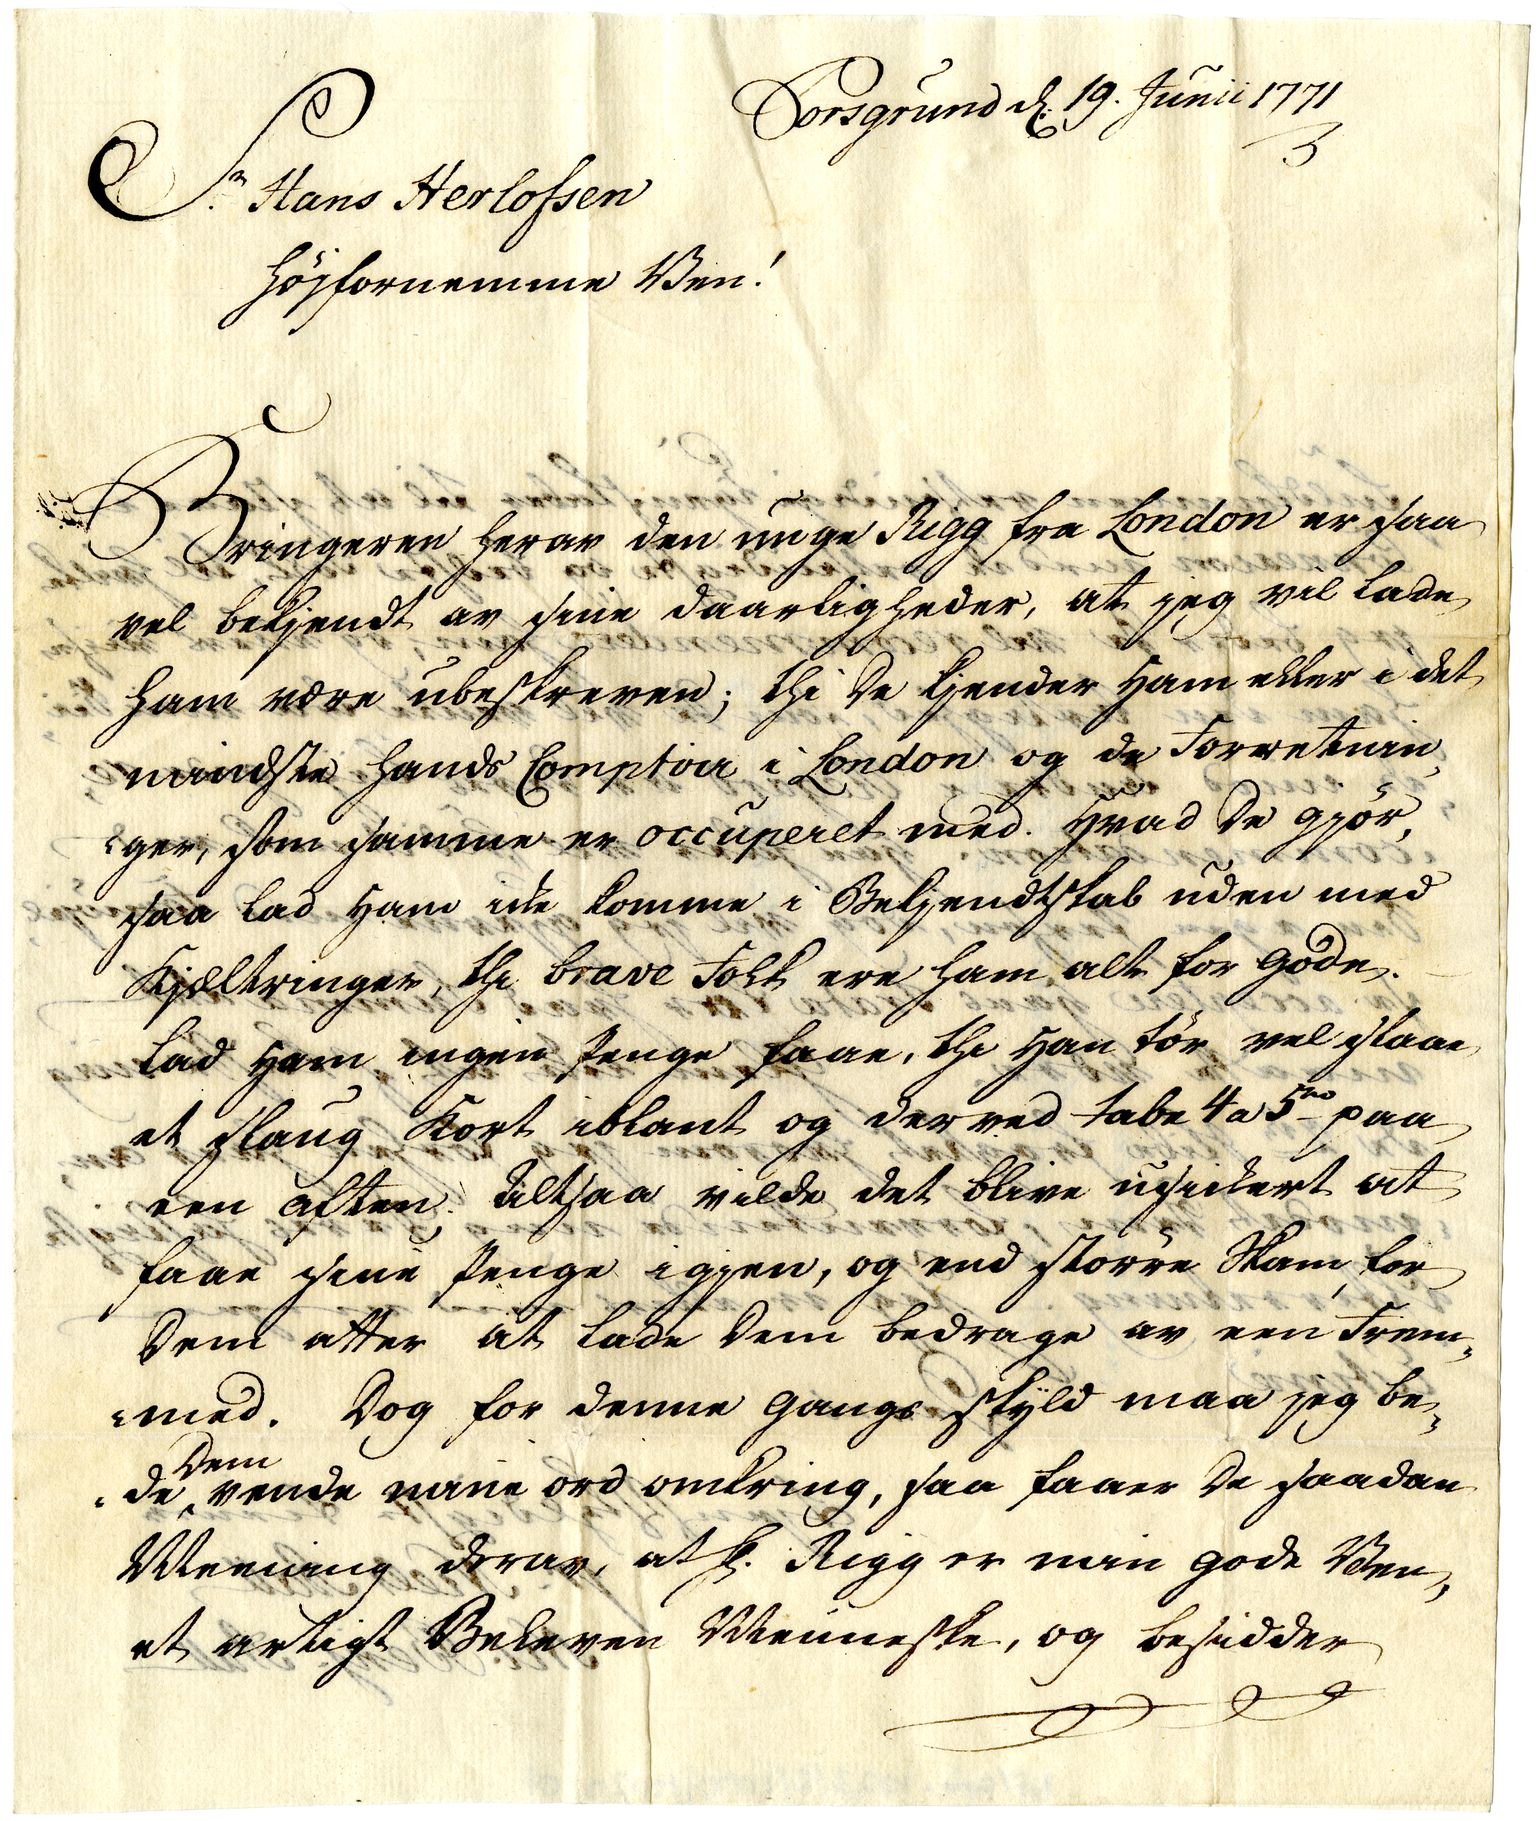 Porsgrund d. 19. Junii 1771
Sr. Hans Herlofsen
Højfornemme Ven!
Bringeren herav den unge Rigg fra London er saa
vel bekjendt av sine daarligheder, at jeg vil lade
ham være ubeskreven; thi De kjender Ham eller i det
mindste hands Comptoir i London og de Forretnin„
„ger, som samme er occuperet med. Hvad De gjör,
saa lad Ham ikke komme i Bekjendtskab uden med
Kjæltringer, thi brave Folk ere ham alt for gode.
Lad Ham ingen Penge faae, thi Han tör vel slaae
et slaug Kort iblant og derved tabe 4 a 5 paa
een aften; Altsaa vilde det blive usickert at
faae sine Penge igjen, og end större Skam for
Dem atter at lade Dem bedrage av een Frem„
„med. Dog for denne Gangs skyld maa jeg be„
Dem
„de vende mine ord omkring, saa faaer De saadan
Meening derav, at H. Rigg er min gode Ven,
et artigt Beleven Menneske, og besidder